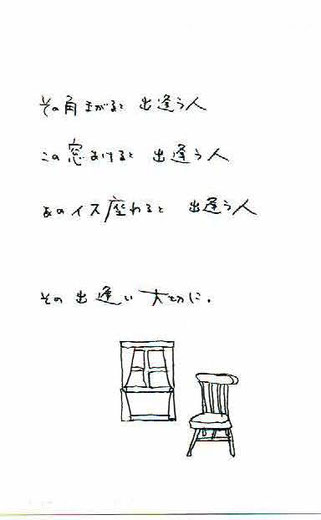 その角まがると 出逢う人
この窓あけると 出逢う人
あのイス座わると 出逢う人
その出逢い 大切に.